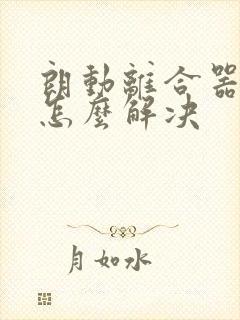 朗動離合器
怎麼解决
月如水